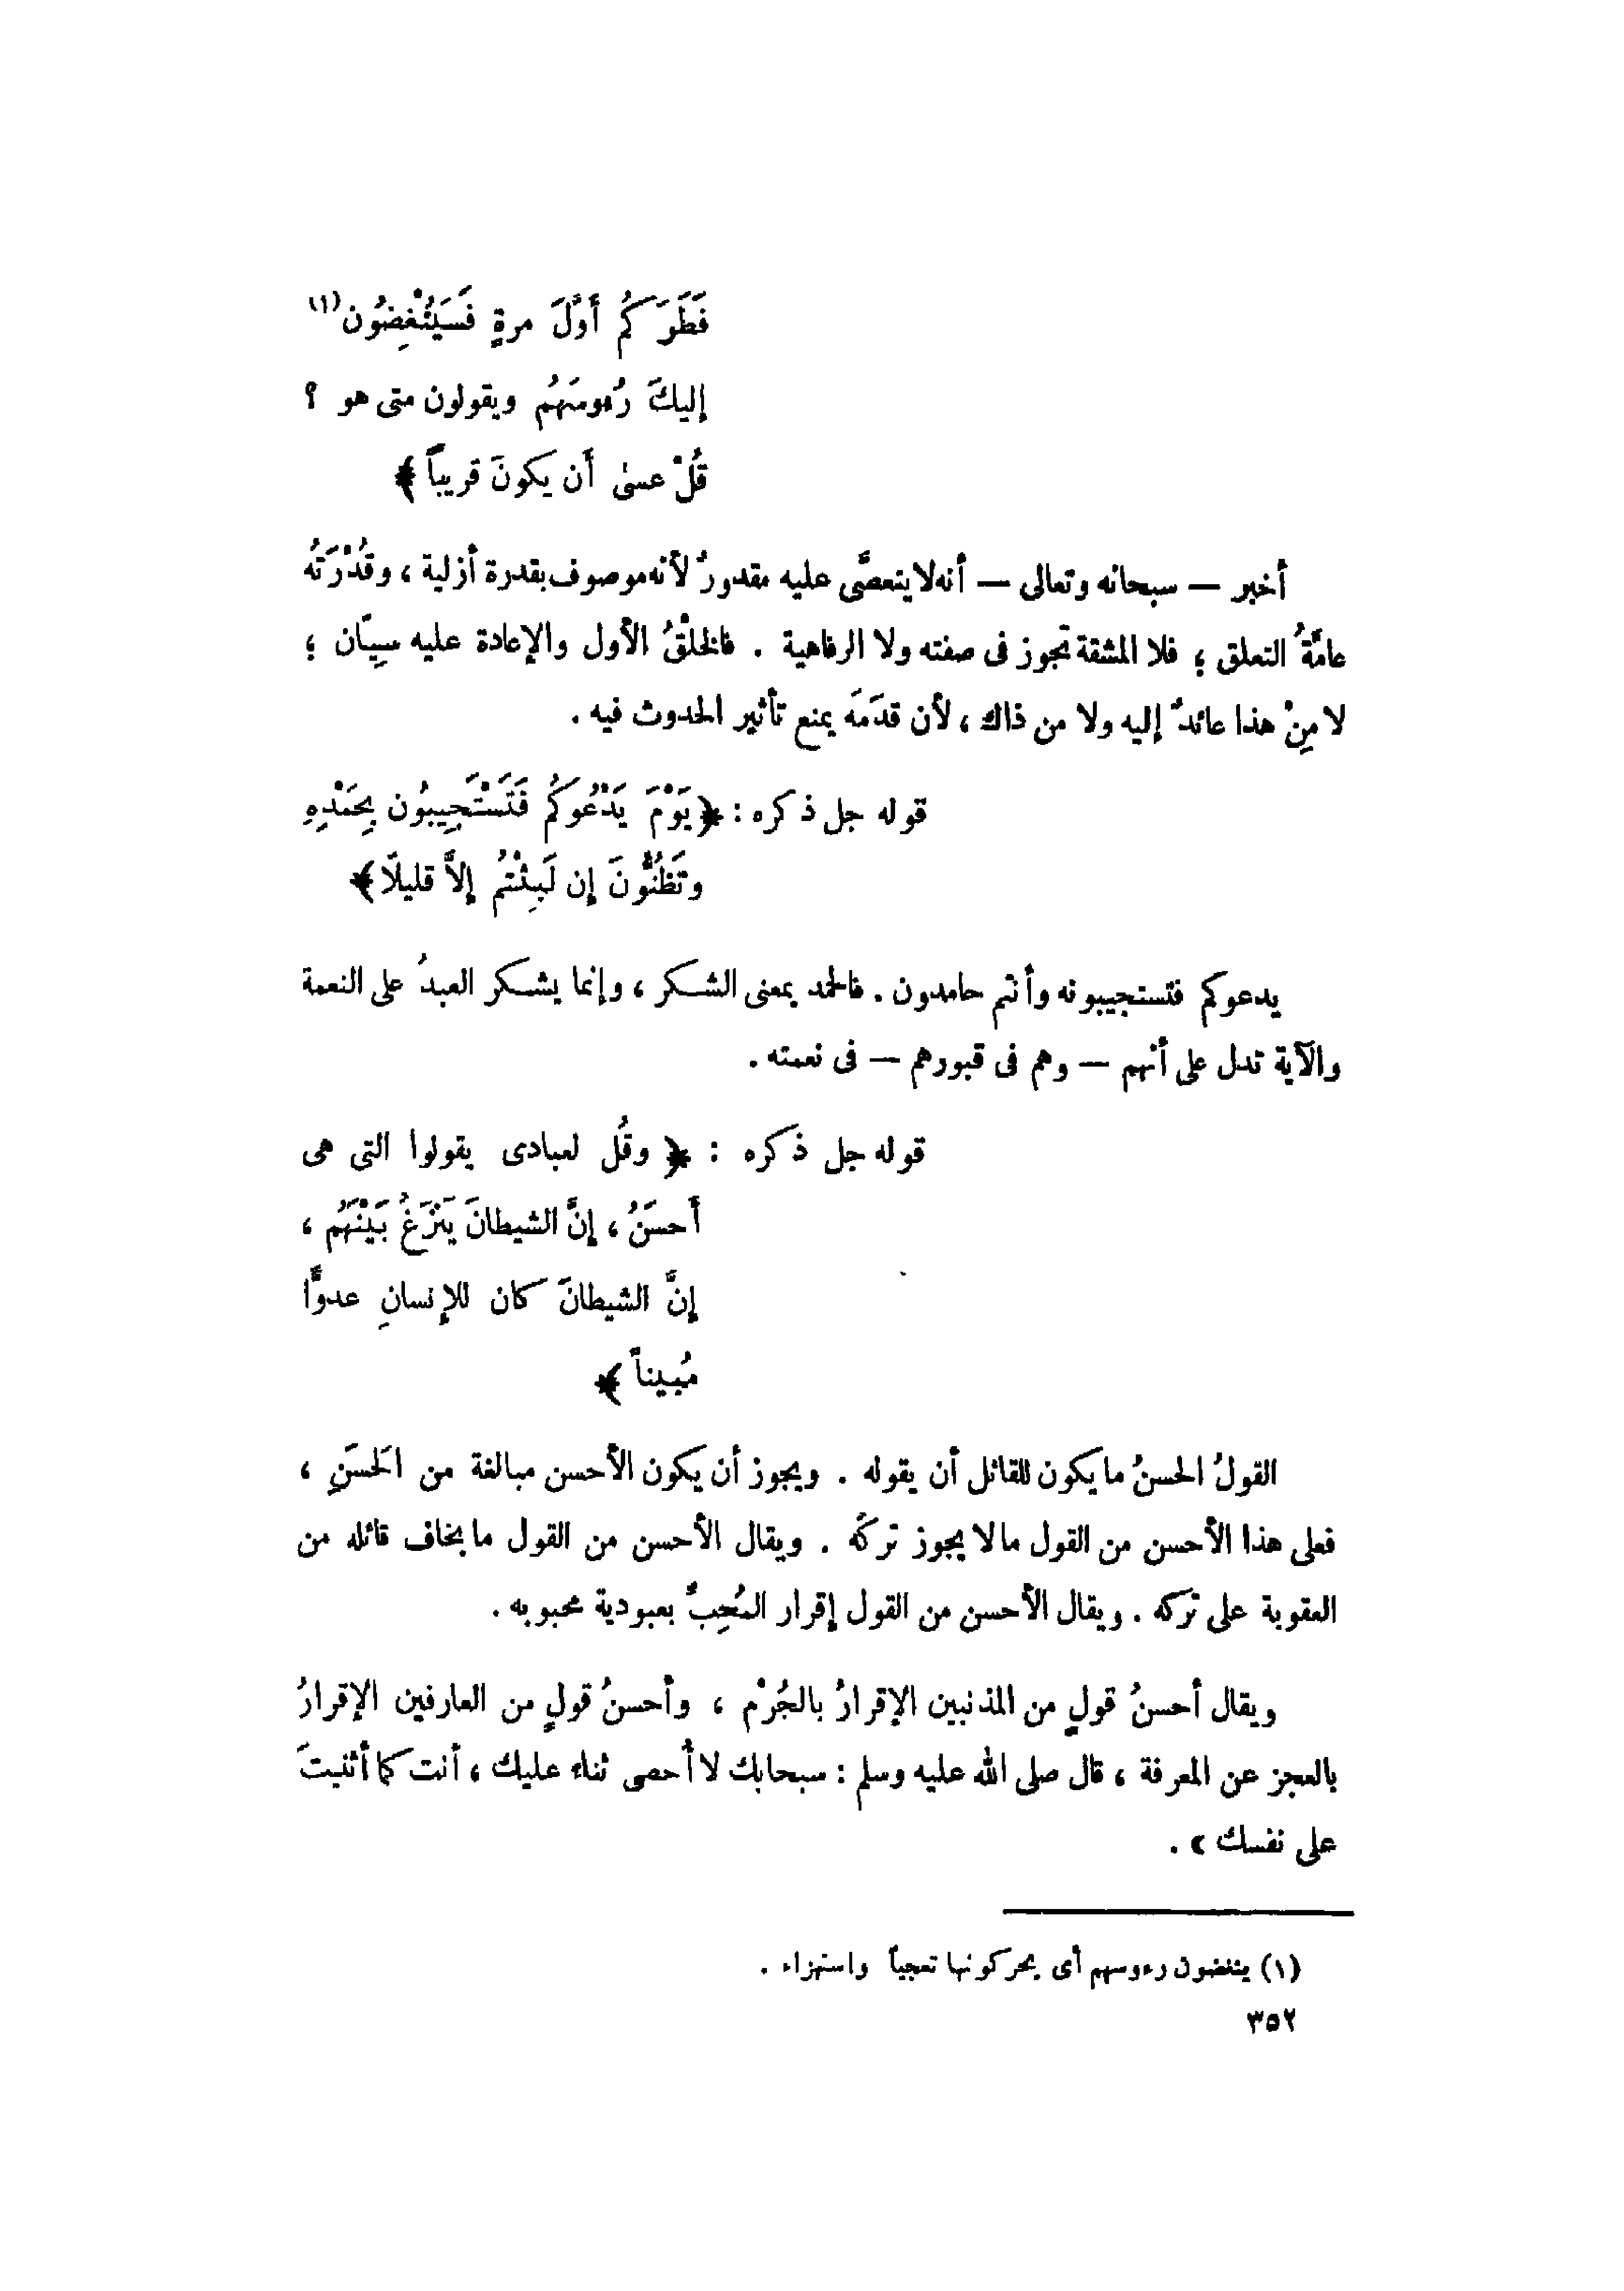 فَطَرَكُم أَوَّلَ مرةٍ فَسَيُنْغِضُون(١)
إليكَ رُءوسَهُم ويقولون متى هو ؟
قُلْ عسىٰ أَن يكونَ قريباً ﴾
أخبر — سبحانه وتعالى — أنه لا يتعصَّى عليه مقدورٌ لأنه موصوف بقدرة أزلية ، وقُدْرَتُه
عامَّةُ التعلق ؛ فلا المشقة تجوز فى صفته ولا الرفاهية . فالخلْقُ الأول والإعادة عليه سيِّان ؛
لا مِنْ هذا عائدٌ إليه ولا من ذاك ، لأن قدَمَه يمنع تأثير الحدوث فيه .
قوله جل ذكره : ﴿ يَوْمَ يَدْعُوكُم فَتَسْتَجِيبُون بِحَمْدِهِ
وتَظُنُّونَ إن لَبِثْتُم إلاَّ قليلًا ﴾
يدعوكم فتستجيبونه وأنتم حامدون . فالحمد بمعنى الشكر ، وإنما يشكر العبدُ على النعمة
والآية تدل على أنهم — وهم فى قبورهم — فى نعمته .
قوله جل ذكره : ﴿ وقُل لعبادى يقولوا التى هى
أَحسَنُ ، إنَّ الشيطانَ يَنزَغُ بَيْنَهُم ،
إنَّ الشيطانَ كان للإنسانِ عدوًّا
مُبيناً ﴾
القولُ الحسنُ ما يكون للقائل أن يقوله . ويجوز أن يكون الأحسن مبالغة من الحَسَنِ ،
فعلى هذا الأحسن من القول ما لا يجوز تركُه . ويقال الأحسن من القول ما يخاف قائله من
العقوبة على تركه . ويقال الأحسن من القول إقرار المُحِبِّ بعبودية محبوبه .
ويقال أحسنُ قولٍ من المذنبين الإقرارُ بالجُرْم ، وأحسنُ قولٍ من العارفين الإقرارُ
بالعجز عن المعرفة ، قال صلى الله عليه وسلم : سبحابك لا أُحصى ثناء عليك ، أنت كما أثنيتَ
على نفسك » .
(١) ينغضون رءوسهم أى يحركونها تعجباً واستهزاء .
٣٥٢